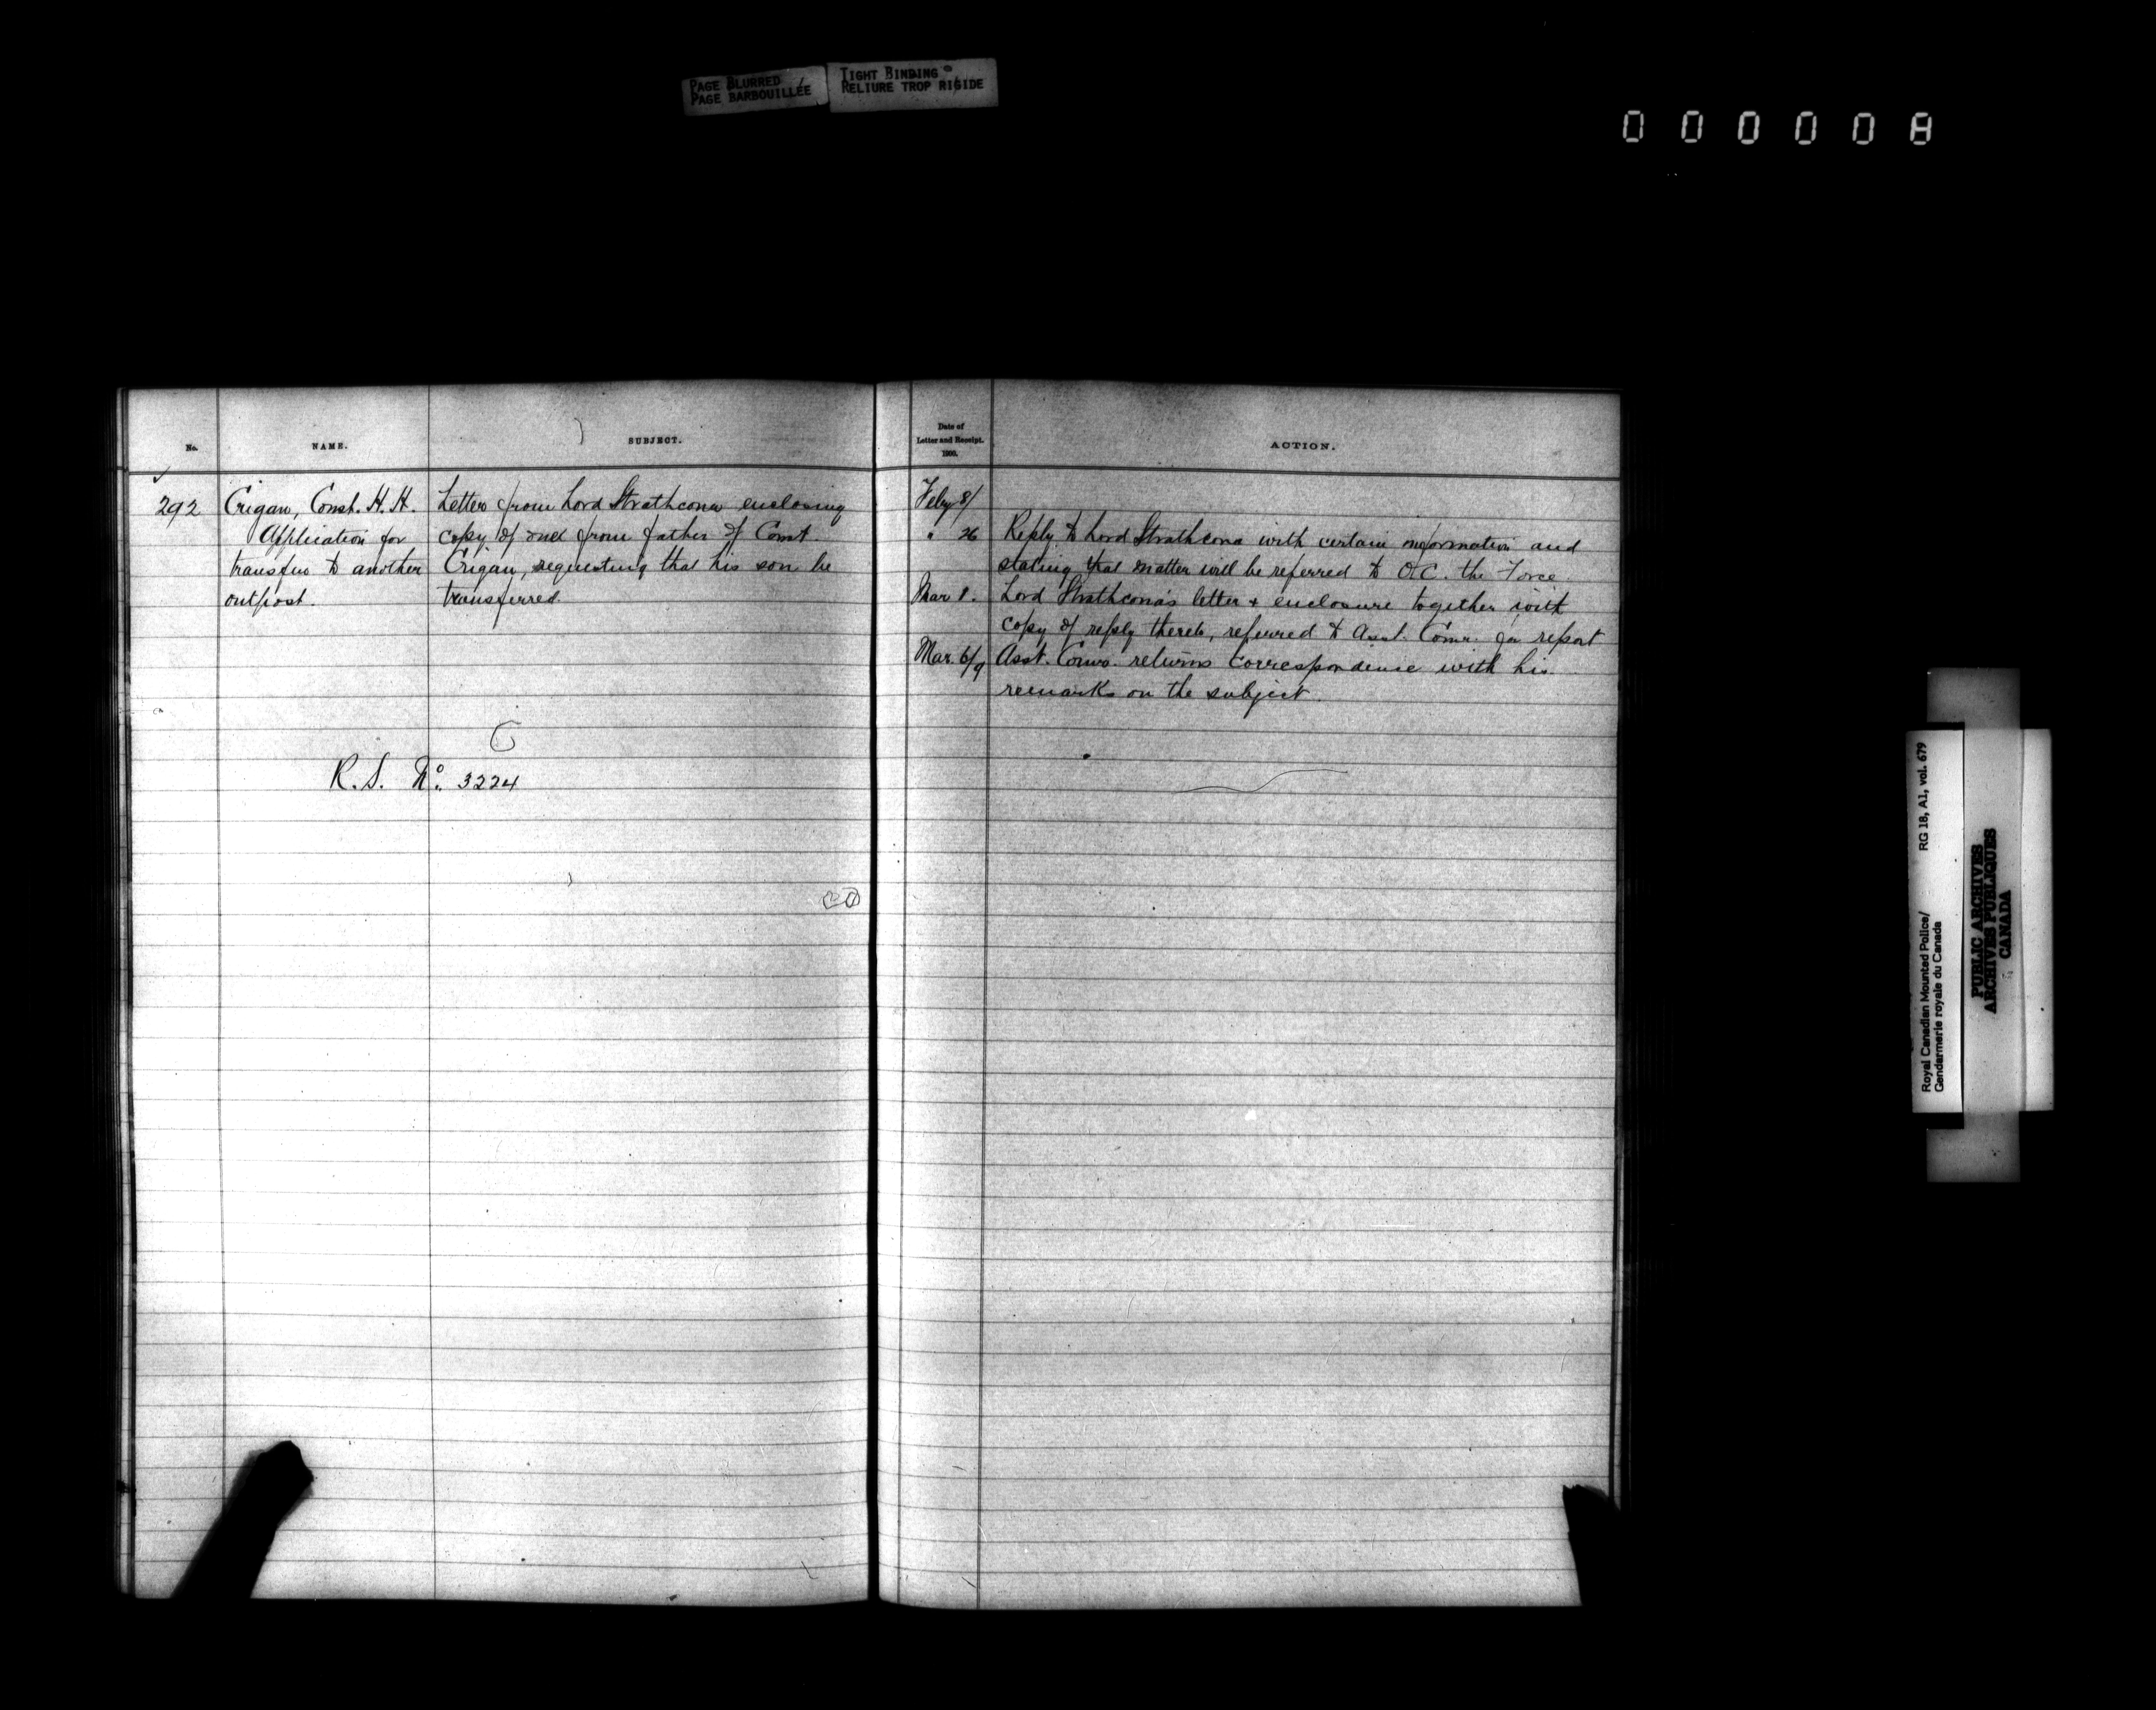 PAGE BLURRED
PAGE BARBOUILLÉE
TIGHT BINDING
RELIURE TROP RIGIDE
No.
NAME.
SUBJECT.
292
Crigan, Const. H. H.
Application for
transfer to another
outpost.
Letter from Lord Strathcona enclosing
copy of one from father of Const.
Crigan, requesting that his son be
transferred.
R.S. No. 3224
Date of
Letter and Receipt.
1900.
ACTION.
Feby 8/
" 26 Reply to Lord Strathcona with certain information and
stating that matter will be referred to O.C. the Force.
Mar 1. Lord Strathcona's letter & enclosure together with
copy of reply thereto, referred to Asst. Comr. for report
Mar. 6/9 Asst. Comr. returns correspondence with his
remarks on the subject.
Royal Canadian Mounted Police/
Gendarmerie royale du Canada
RG 18, A1, vol. 679
PUBLIC ARCHIVES
ARCHIVES PUBLIQUES
CANADA